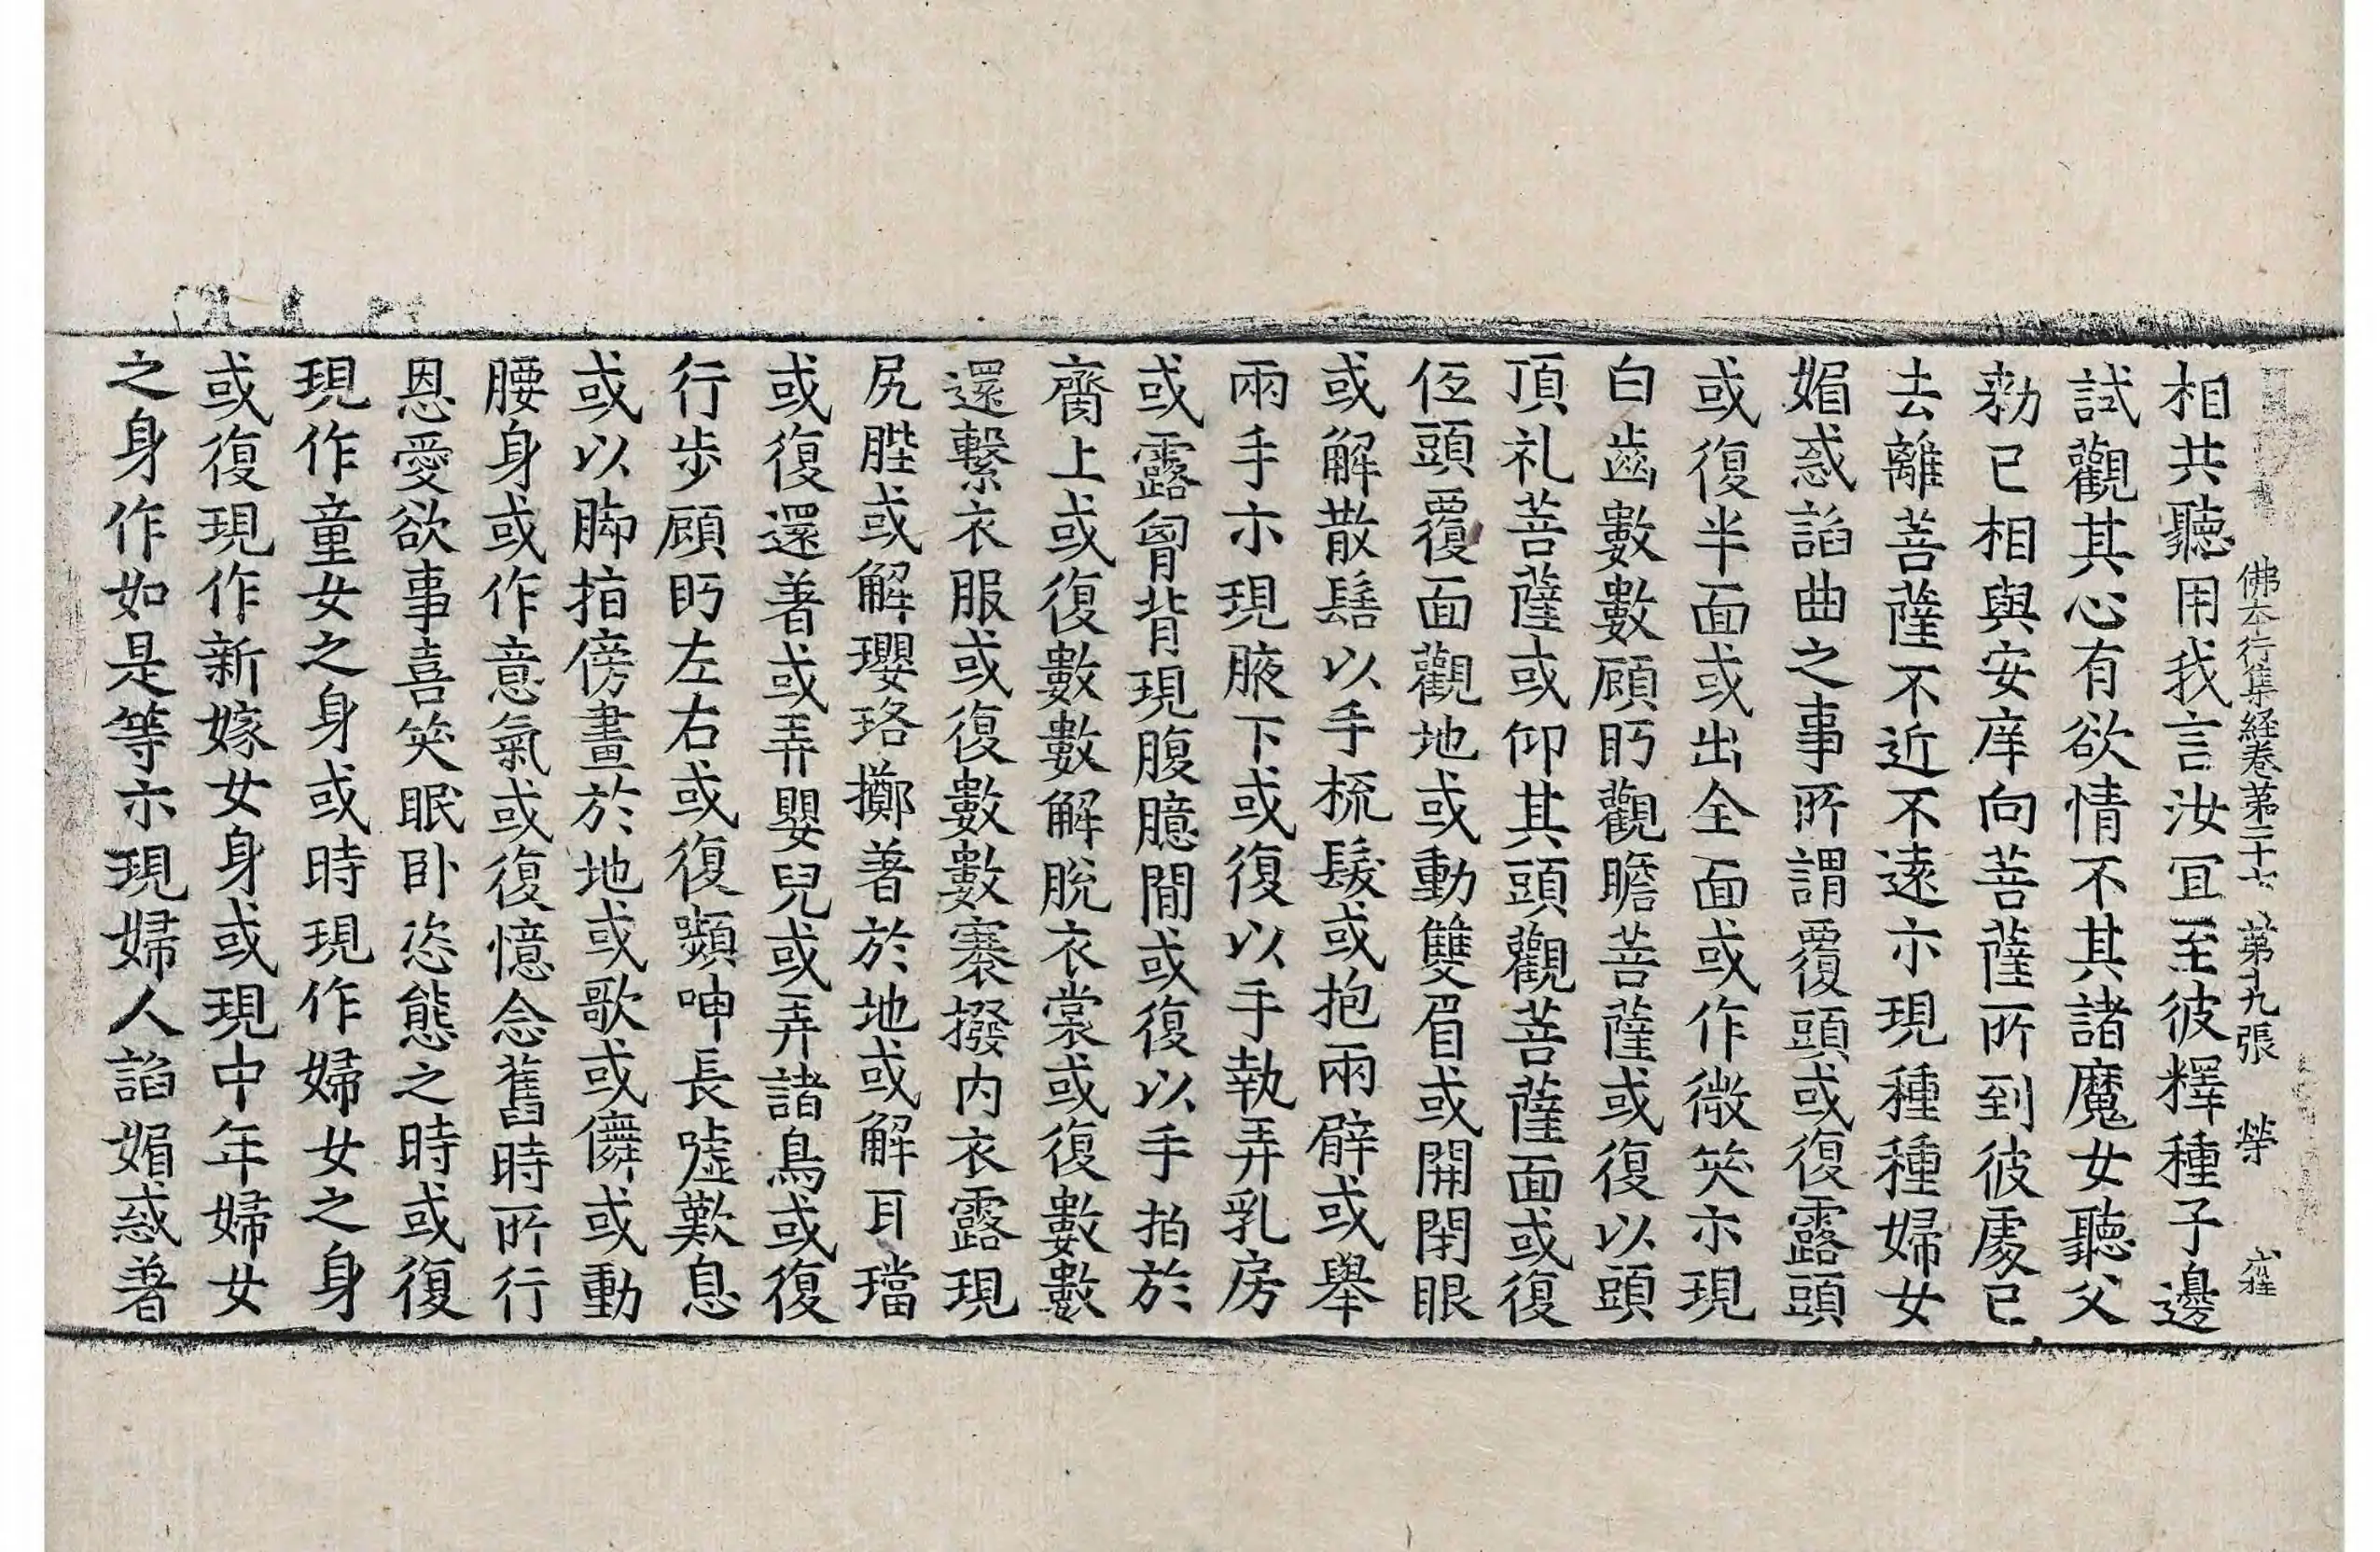 佛本行集経卷第二十七 第十九張 榮
相共聽用我言汝冝至彼釋種子邊
試觀其心有欲情不其諸魔女聽父
勑已相與安庠向菩薩所到彼處已
去離菩薩不近不遠亦現種種婦女
媚惑諂曲之事所謂覆頭或復露頭
或復半面或出全面或作微笑亦現
白齒數數顧眄觀瞻菩薩或復以頭
頂礼菩薩或仰其頭觀菩薩面或復
低頭覆面觀地或動雙眉或開閉眼
或解散髻以手梳髮或抱兩臂或舉
兩手亦現腋下或復以手執弄乳房
或露胷背現腹臆間或復以手拍於
齎上或復數數解脫衣裳或復數數
還繫衣服或復數數褰撥内衣露現
尻䏶或解瓔珞擲著於地或解耳璫
或復還著或弄嬰兒或弄諸鳥或復
行步顧眄左右或復嚬呻長噓歎息
或以脚指傍畫於地或歌或儛或動
腰身或作意氣或復憶念舊時所行
恩愛欲事喜笑眠卧恣態之時或復
現作童女之身或時現作婦女之身
或復現作新嫁女身或現中年婦女
之身作如是等亦現婦人諂媚惑著